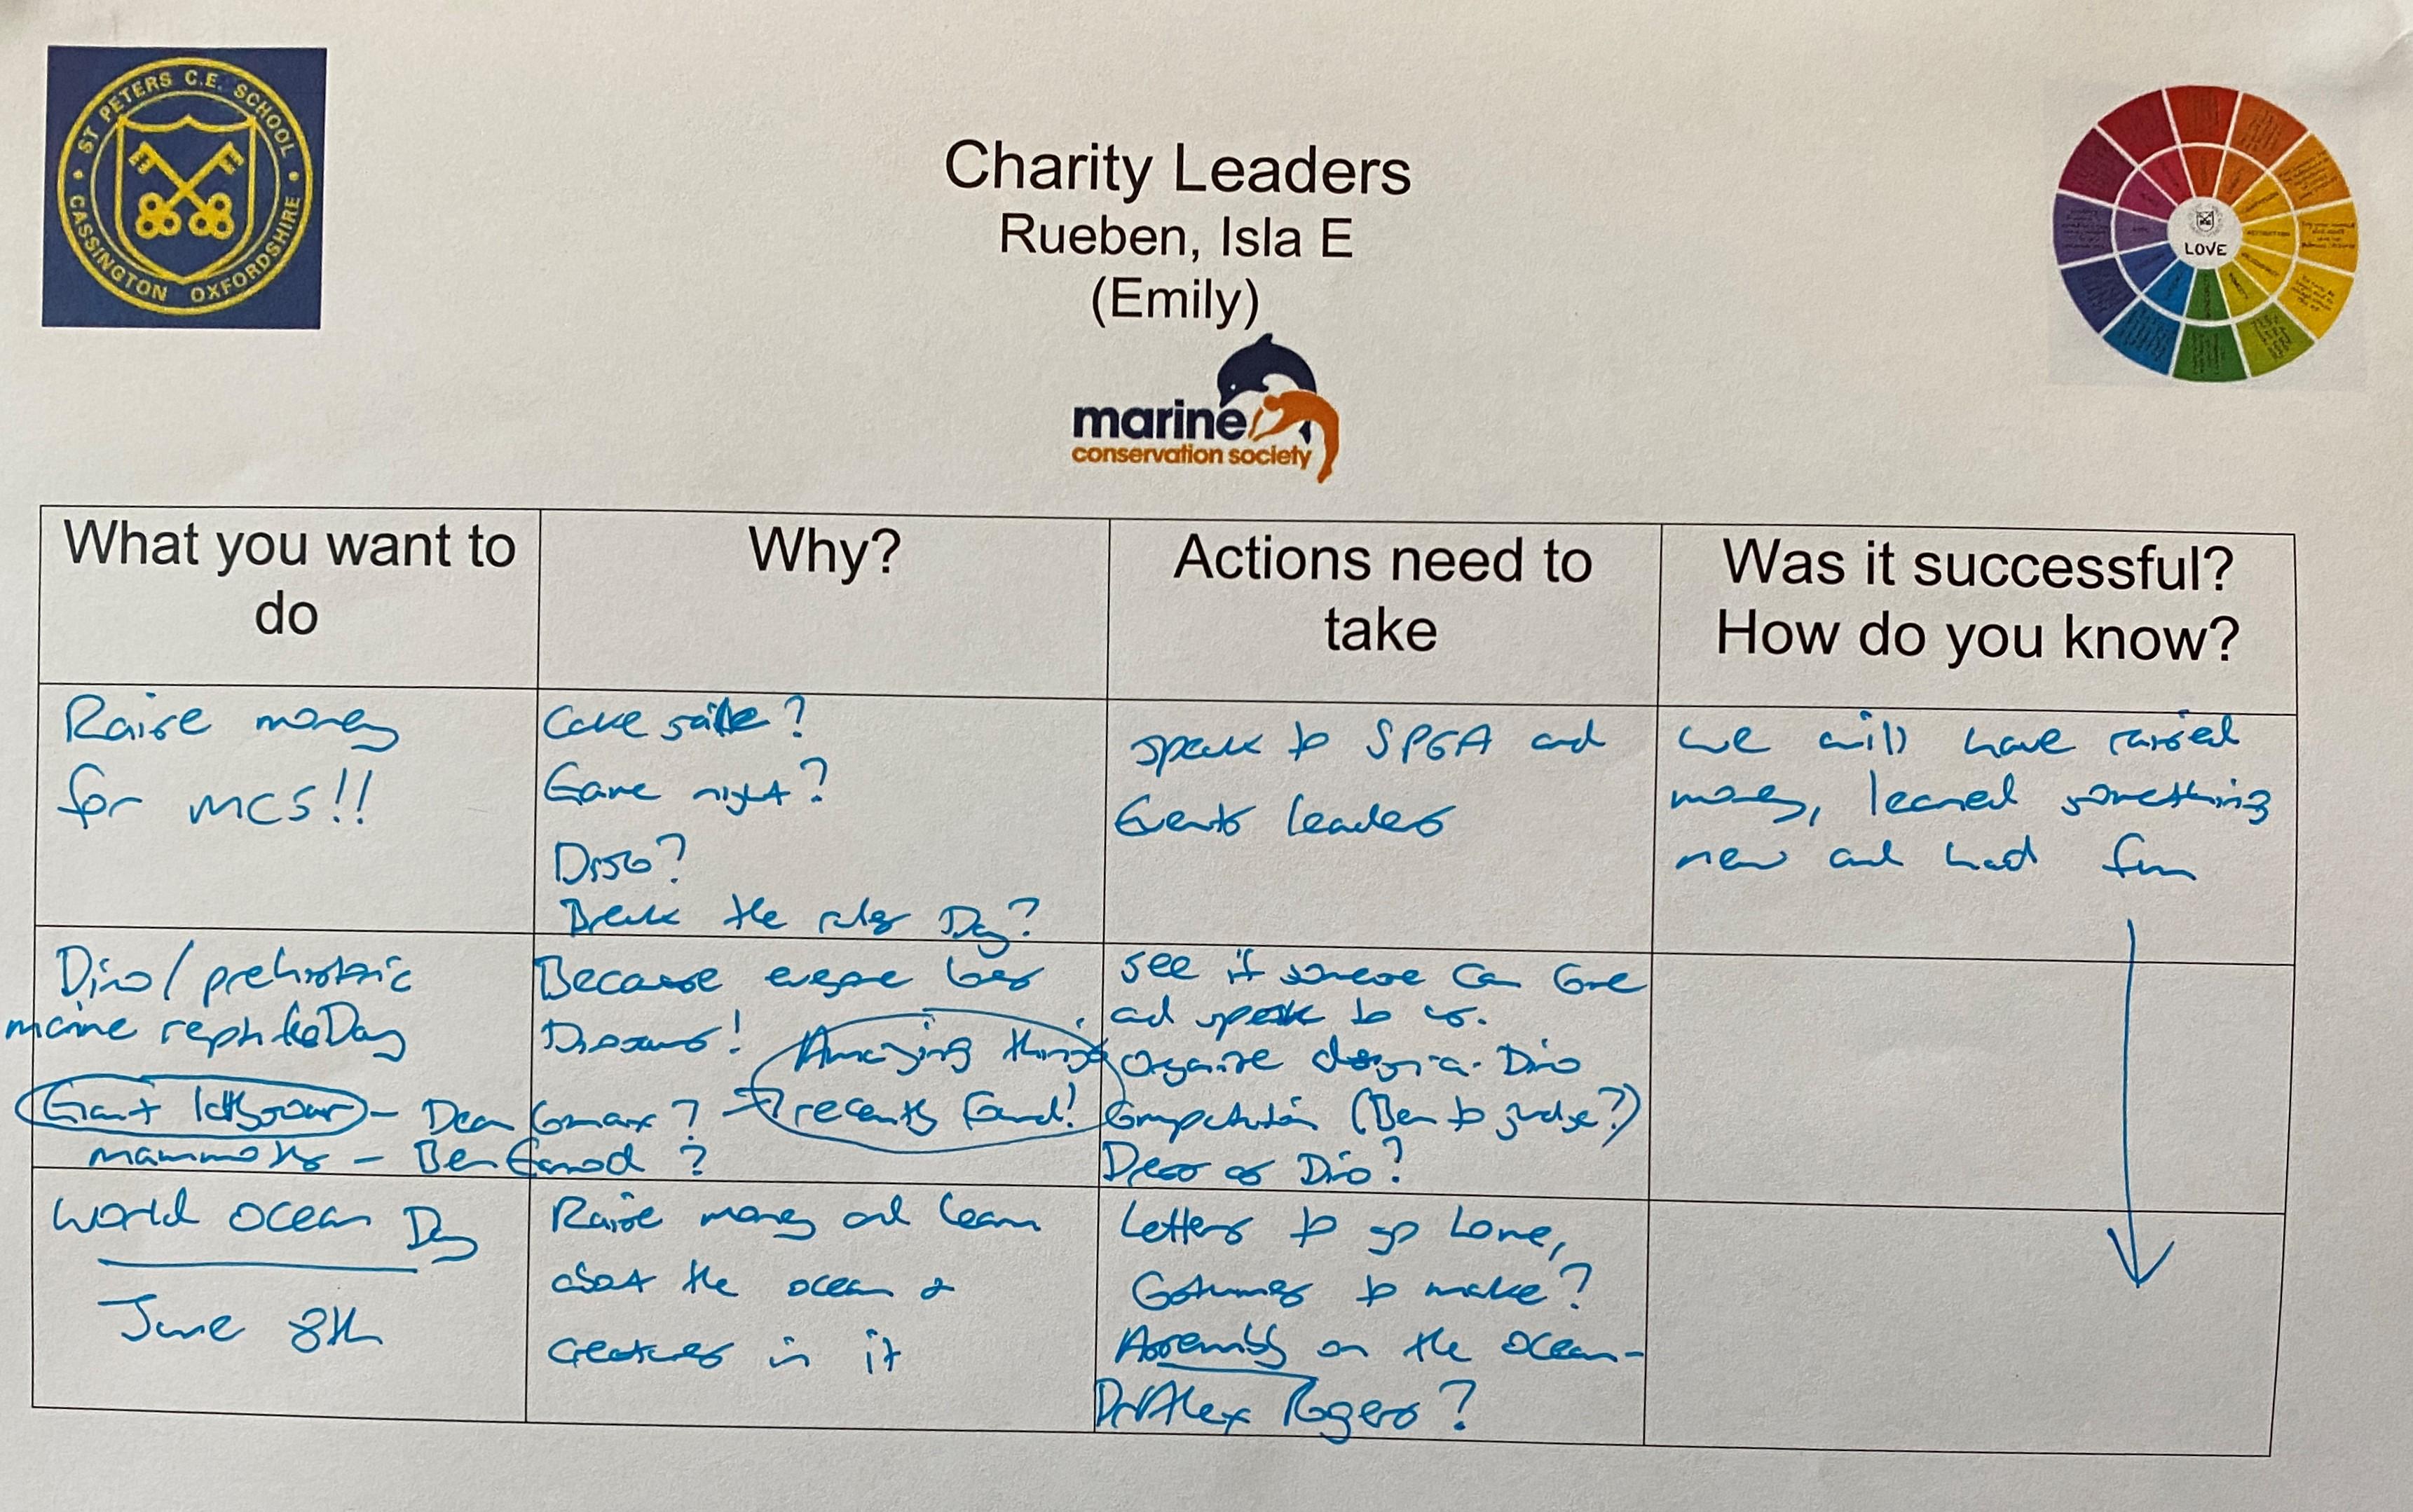 ST PETERS C.E. SCHOOL
CASSINGTON OXFORDSHIRE
Charity Leaders
Rueben, Isla E
(Emily)
LOVE
marine
conservation society
What you want to
do
Why?
Actions need to
take
Was it successful?
How do you know?
Raise money
for MCS!!
Cake sale?
Game night?
Disco?
Break the rules Day?
speak to SPSA and
Events leaders
we will have raised
money, learned something
new and had fun
Dino/prehistoric
marine reptile Day
Giant Icthyosaur - Dean Lomax?
mammoths - Ben Garrod?
Because everyone loves
Dinosaurs!
Amazing things
recently found!
see if someone can come
and speak to us.
Organise design-a-Dino
Competition (Ben to judge?)
Dress as Dino?
World Ocean Day
June 8th
Raise money and learn
about the ocean &
creatures in it
Letters to go home,
Costumes to make?
Assembly on the ocean-
Dr Alex Rogers?